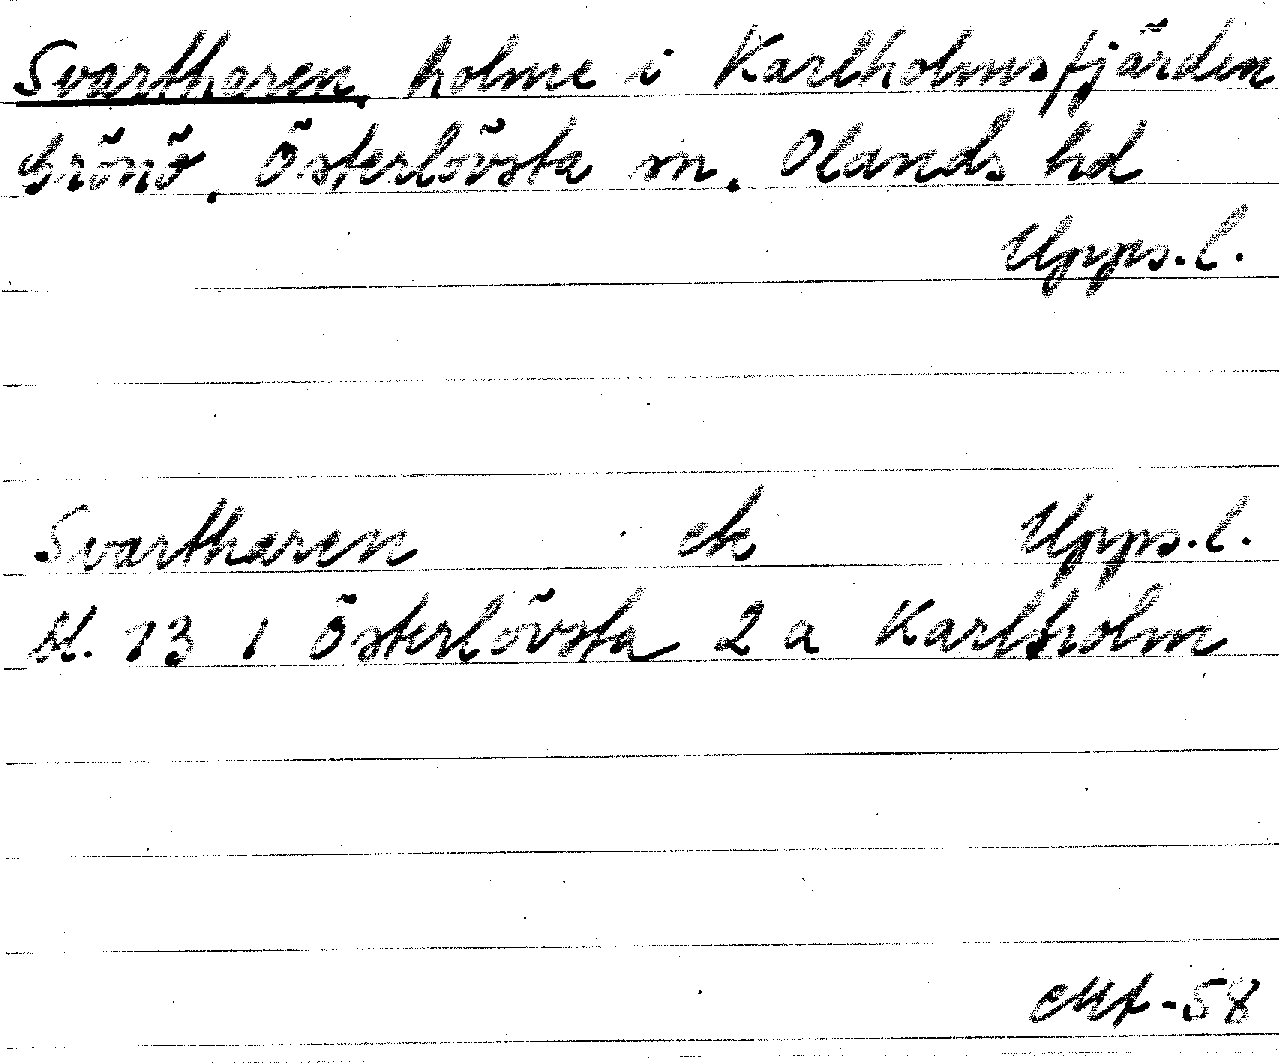 Svartharen, holme i Karlholmsfjärden
Grönö, Österlövsta sn. Olands hd
Upps.l.
Svartharen ek Upps.l.
bl. 13 i Österlövsta 2 a Karlholm
-58